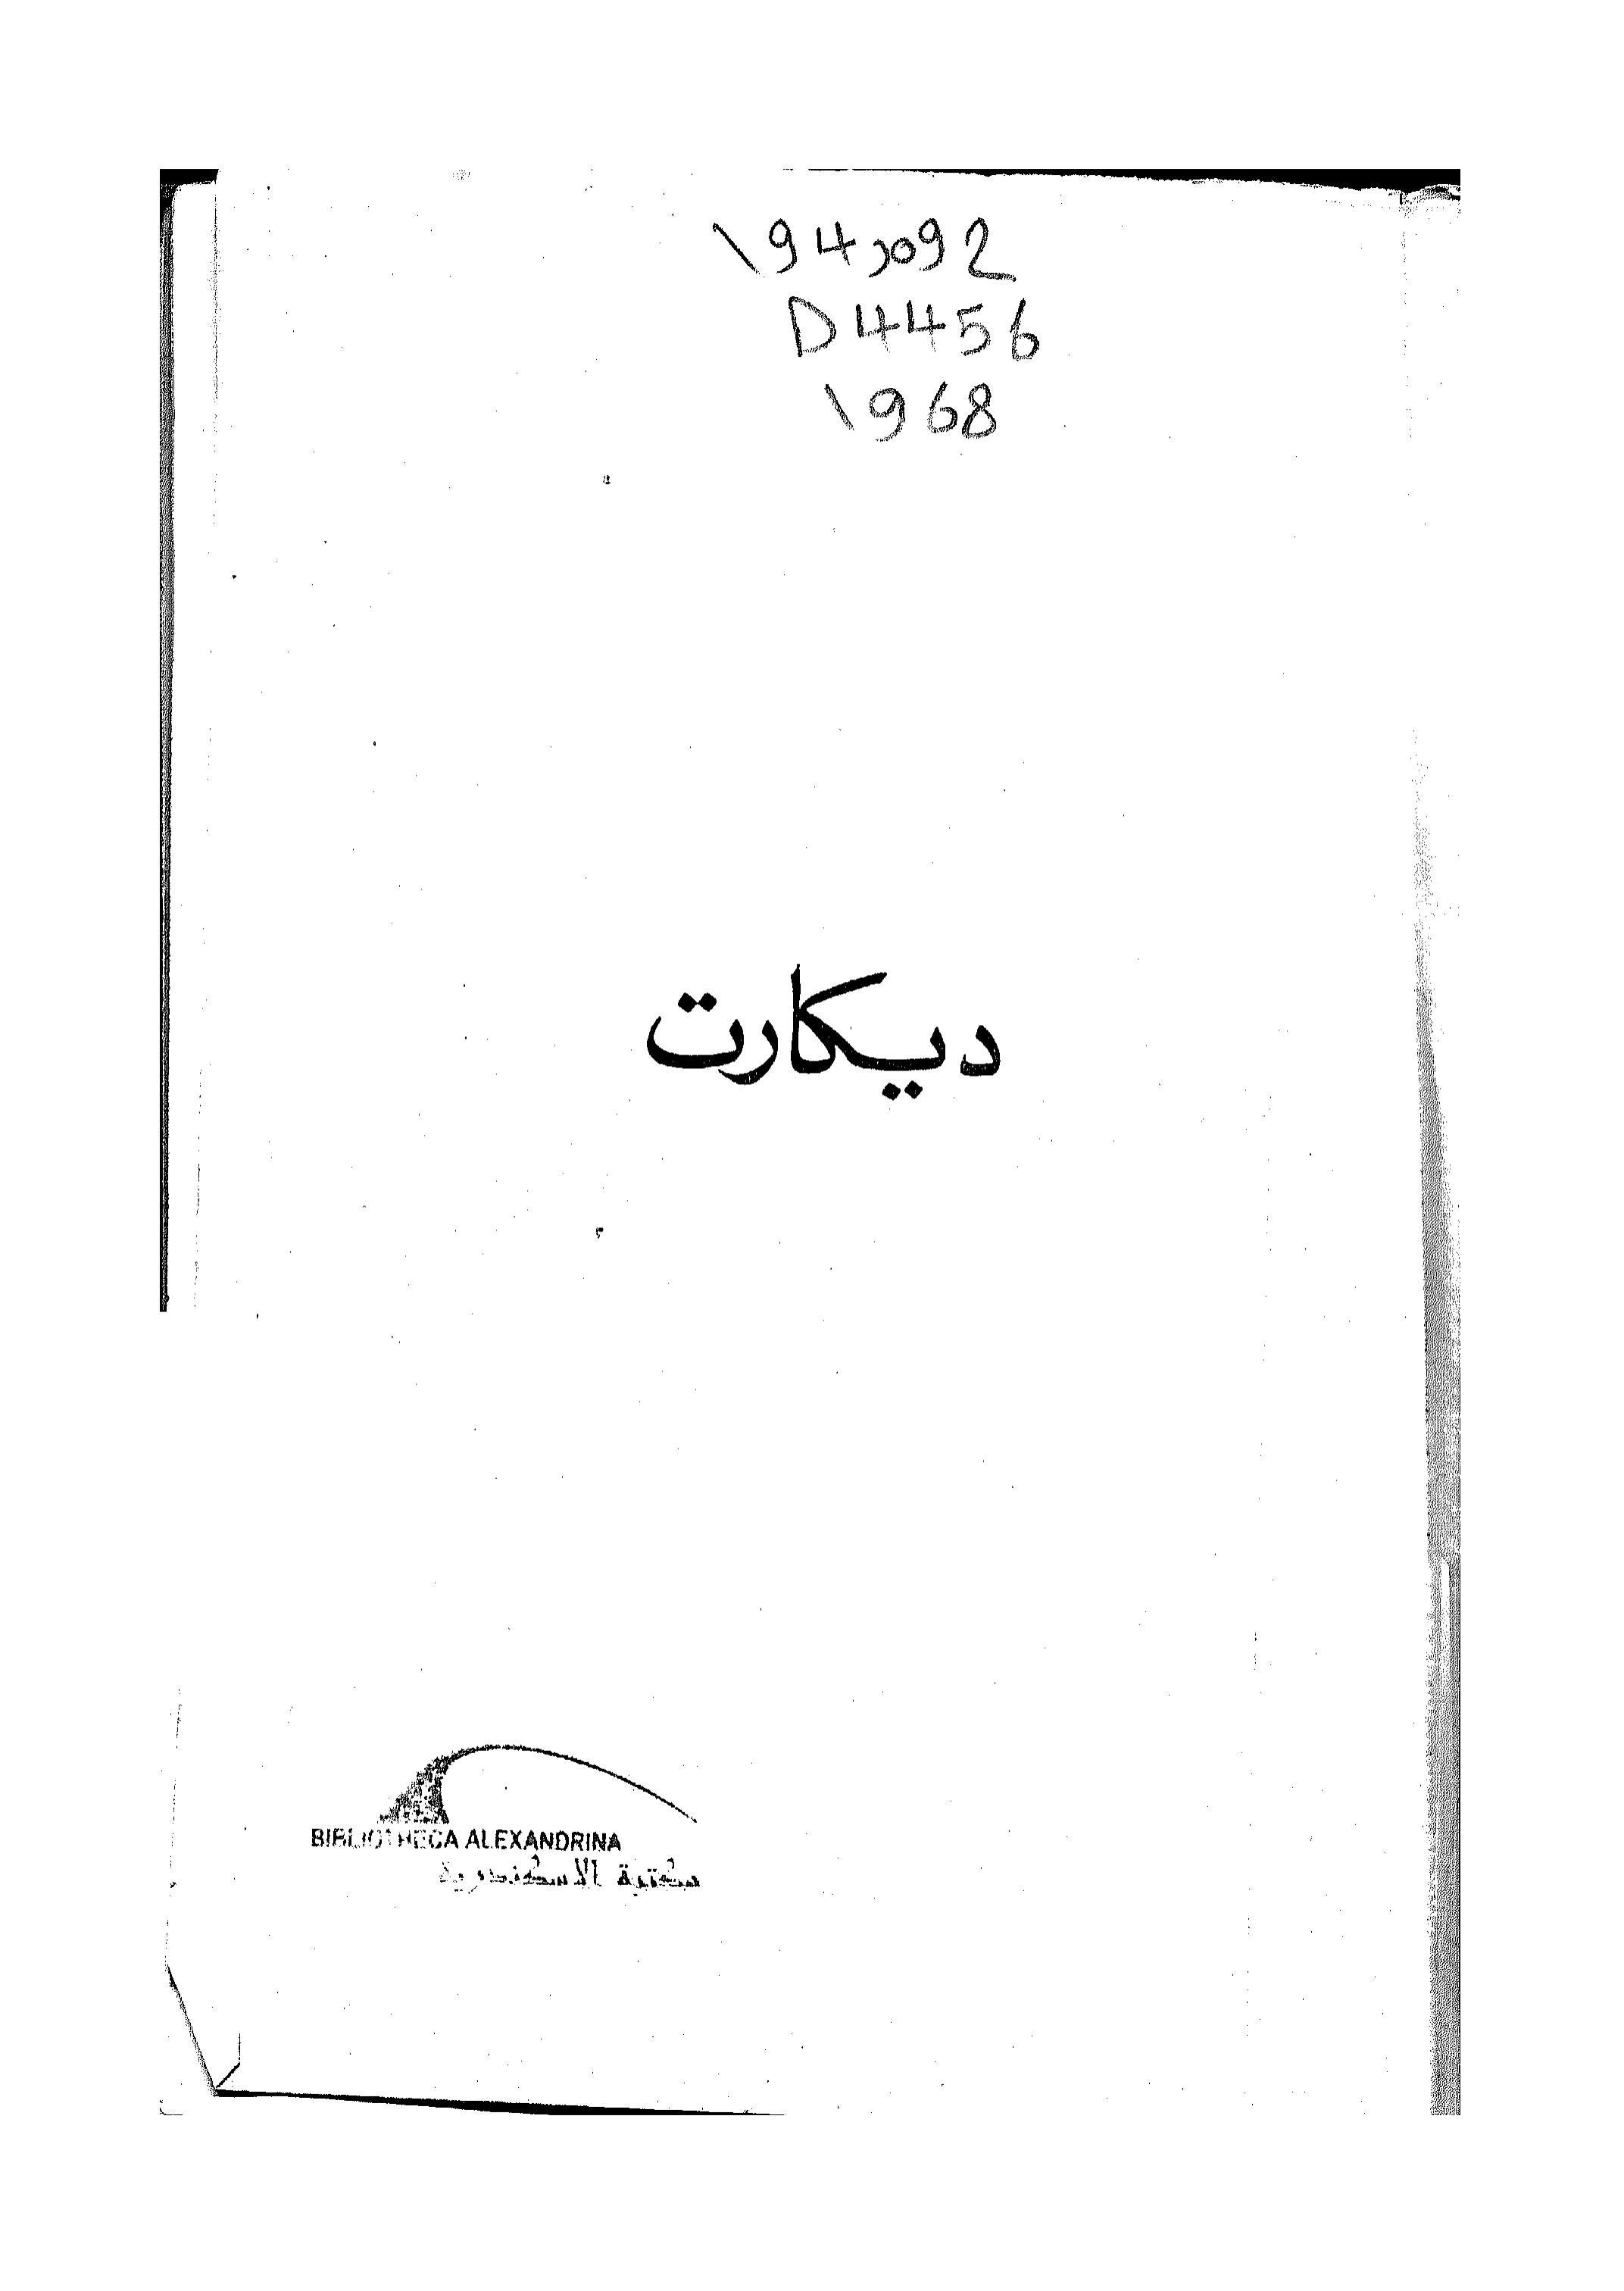 194,092
D4456
1968
ديكارت
BIBLIOTHECA ALEXANDRINA
مكتبة الاسكندرية